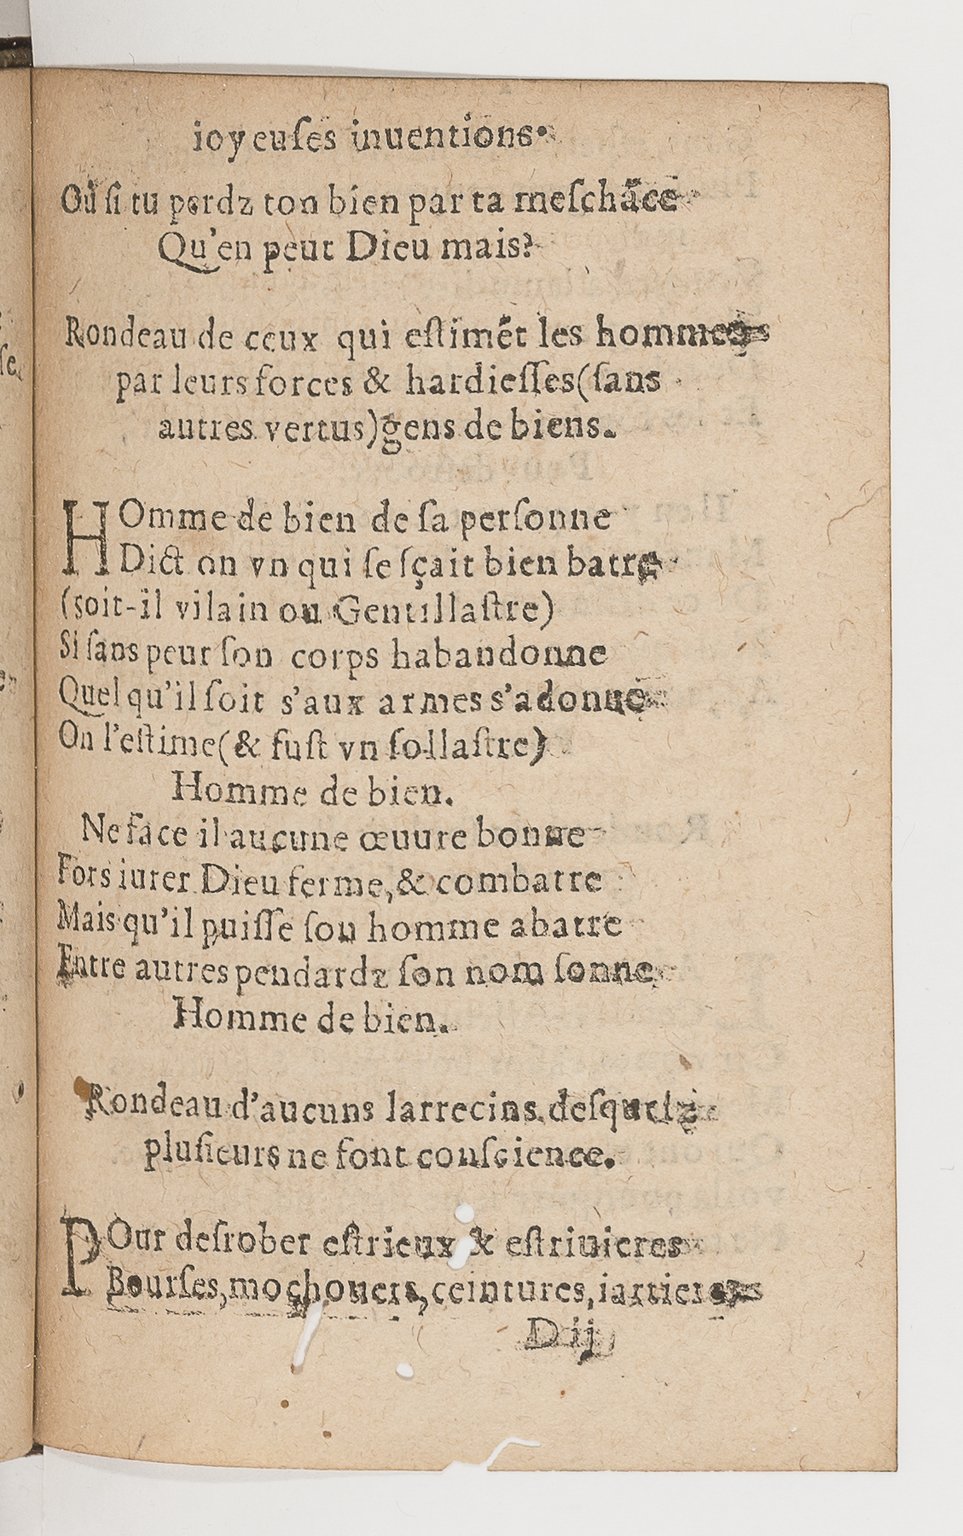 ioyeuſes inuentions.
Ou ſi tu perdz ton bien par ta meſchãcé
Qu'en peut Dieu mais?
Rondeau de ceux qui eſtimẽt les hommes
par leurs forces & hardieſſes(ſans
autres vertus)gens de biens.
HOmme de bien de ſa perſonne
Dict on vn qui ſe ſçait bien batre
(soit-il vilain ou Gentillaſtre)
Si ſans peur ſon corps habandonne
Quel qu'il ſoit s'aux armes s'adonne
On l'eſtime(& fuſt vn follaſtre)
Homme de bien.
Ne face il aucune œuure bonne
Fors iurer Dieu ferme,& combatre
Mais qu'il puiſſe ſon homme abatre
Entre autres pendardz ſon nom ſonne
Homme de bien.
Rondeau d'aucuns larrecins deſquelz
pluſieurs ne font conſcience.
POur deſrober eſtrieux & eſtriuieres
Bourſes,mochouers,ceintures,iartieres
D ij